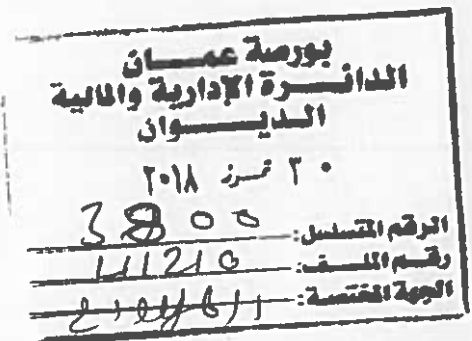 بورصة عمـــان
الدائـــرة الإدارية والمالية
الديـــــوان
٣٠ تمـــوز ٢٠١٨
الرقم المتسلسل: 3800
رقـــم الملـــف: 141210
الجهة المختصة: